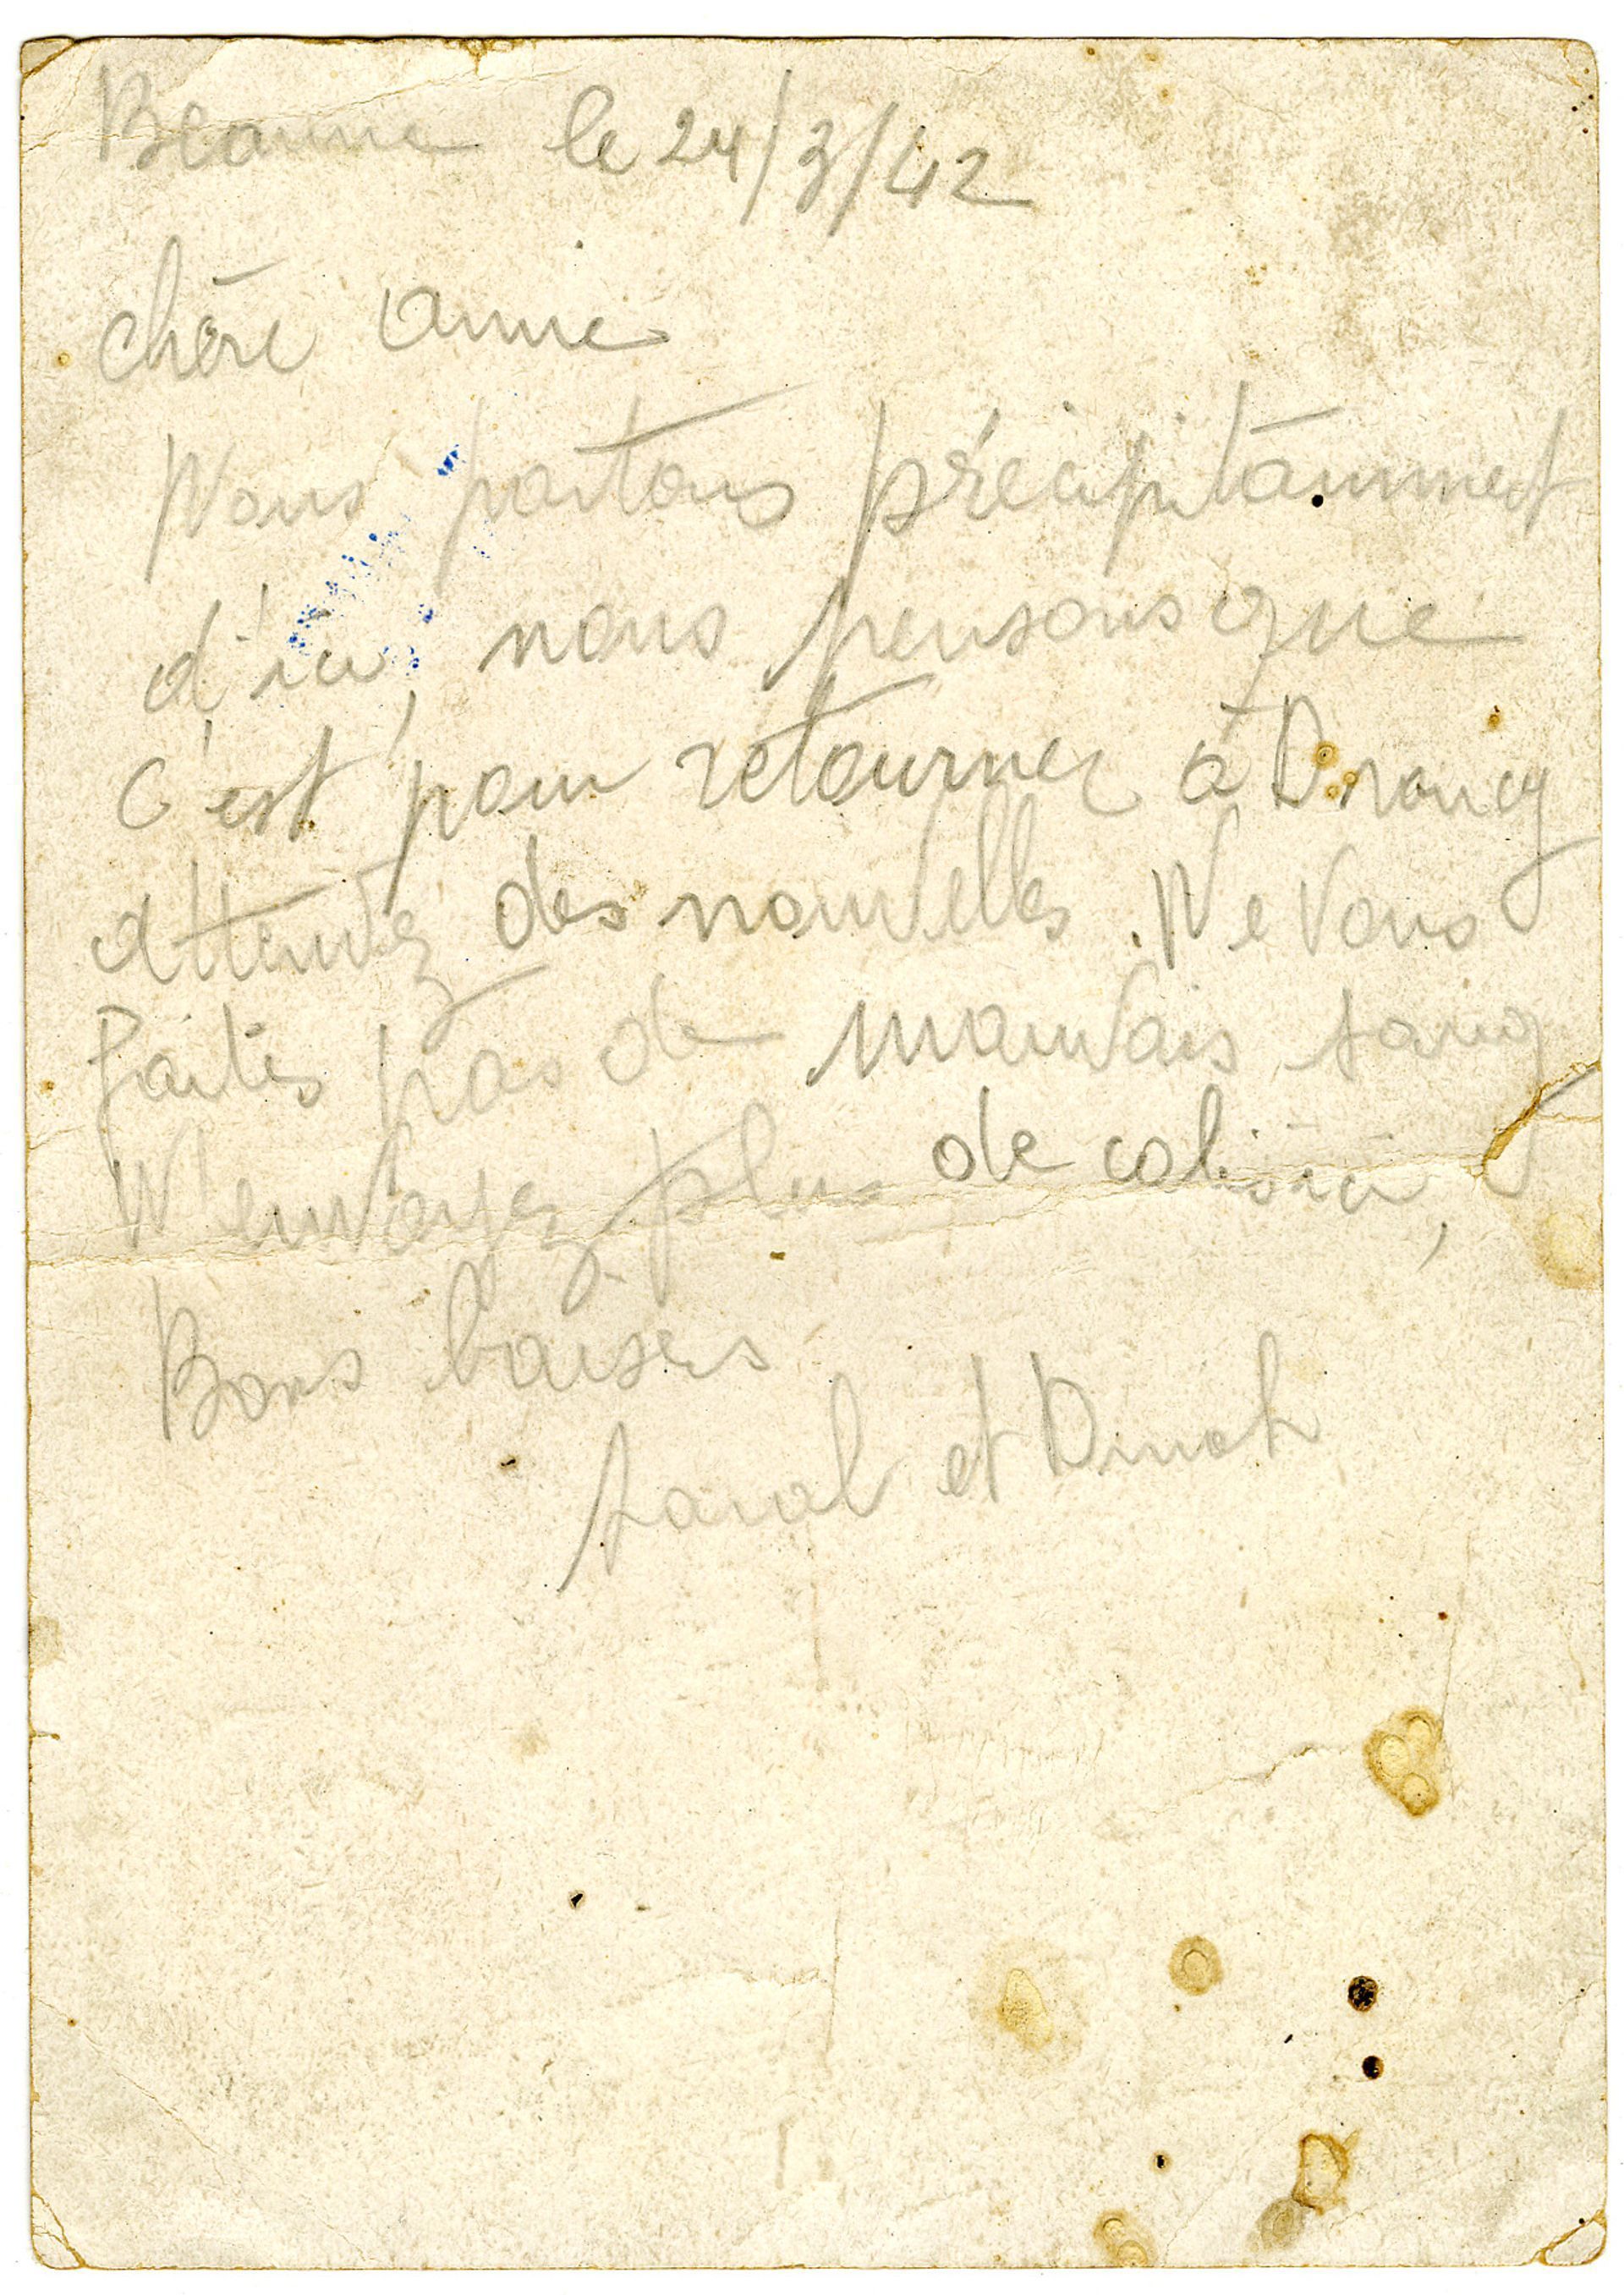 Beaune le 24/3/42
chère Annie
Nous partons précipitamment
d'ici, nous pensons que
c'est pour retourner à Drancy
attendez des nouvelles. Ne vous
faites pas de mauvais sang
N'envoyez plus de colis ici,
Bons baisers
Sarah et Dinah